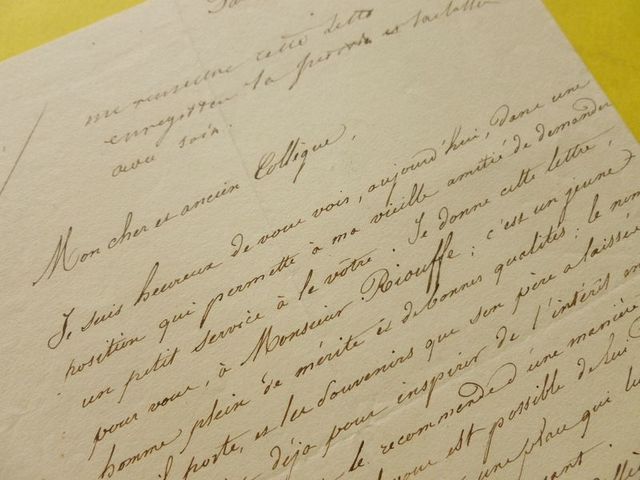 me renvoyer cette lettre
enregistrer la
avec soin.
Mon cher et ancien Collègue,
Je suis heureux de vous voir, aujourd'hui, dans une
position qui permette à ma vieille amitié de demander
un petit service à la vôtre. Je donne cette lettre,
pour vous, à Monsieur Riouffe; c'est un jeune
homme plein de mérite et de bonnes qualités; le nom
il porte, et les souvenirs que son père a laissés
déjà pour inspirer de l'intérêt en
le recommande d'une manière
vous est possible de lui
une place qui lu